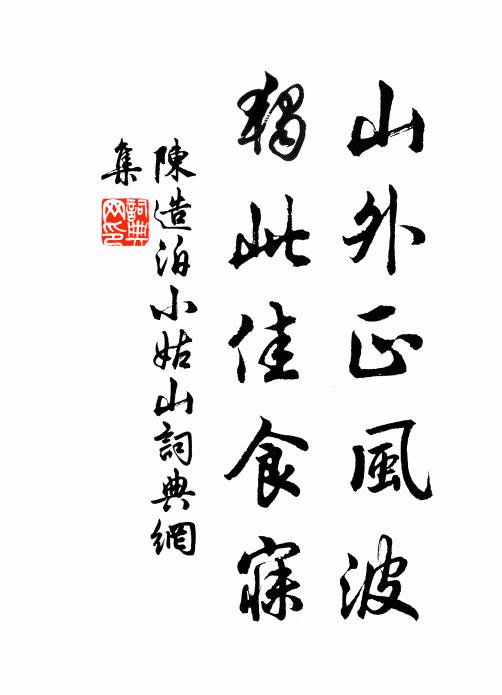 山外正風波
獨此佳食寐
陳造泊小姑山詞典網
集
詞典網印